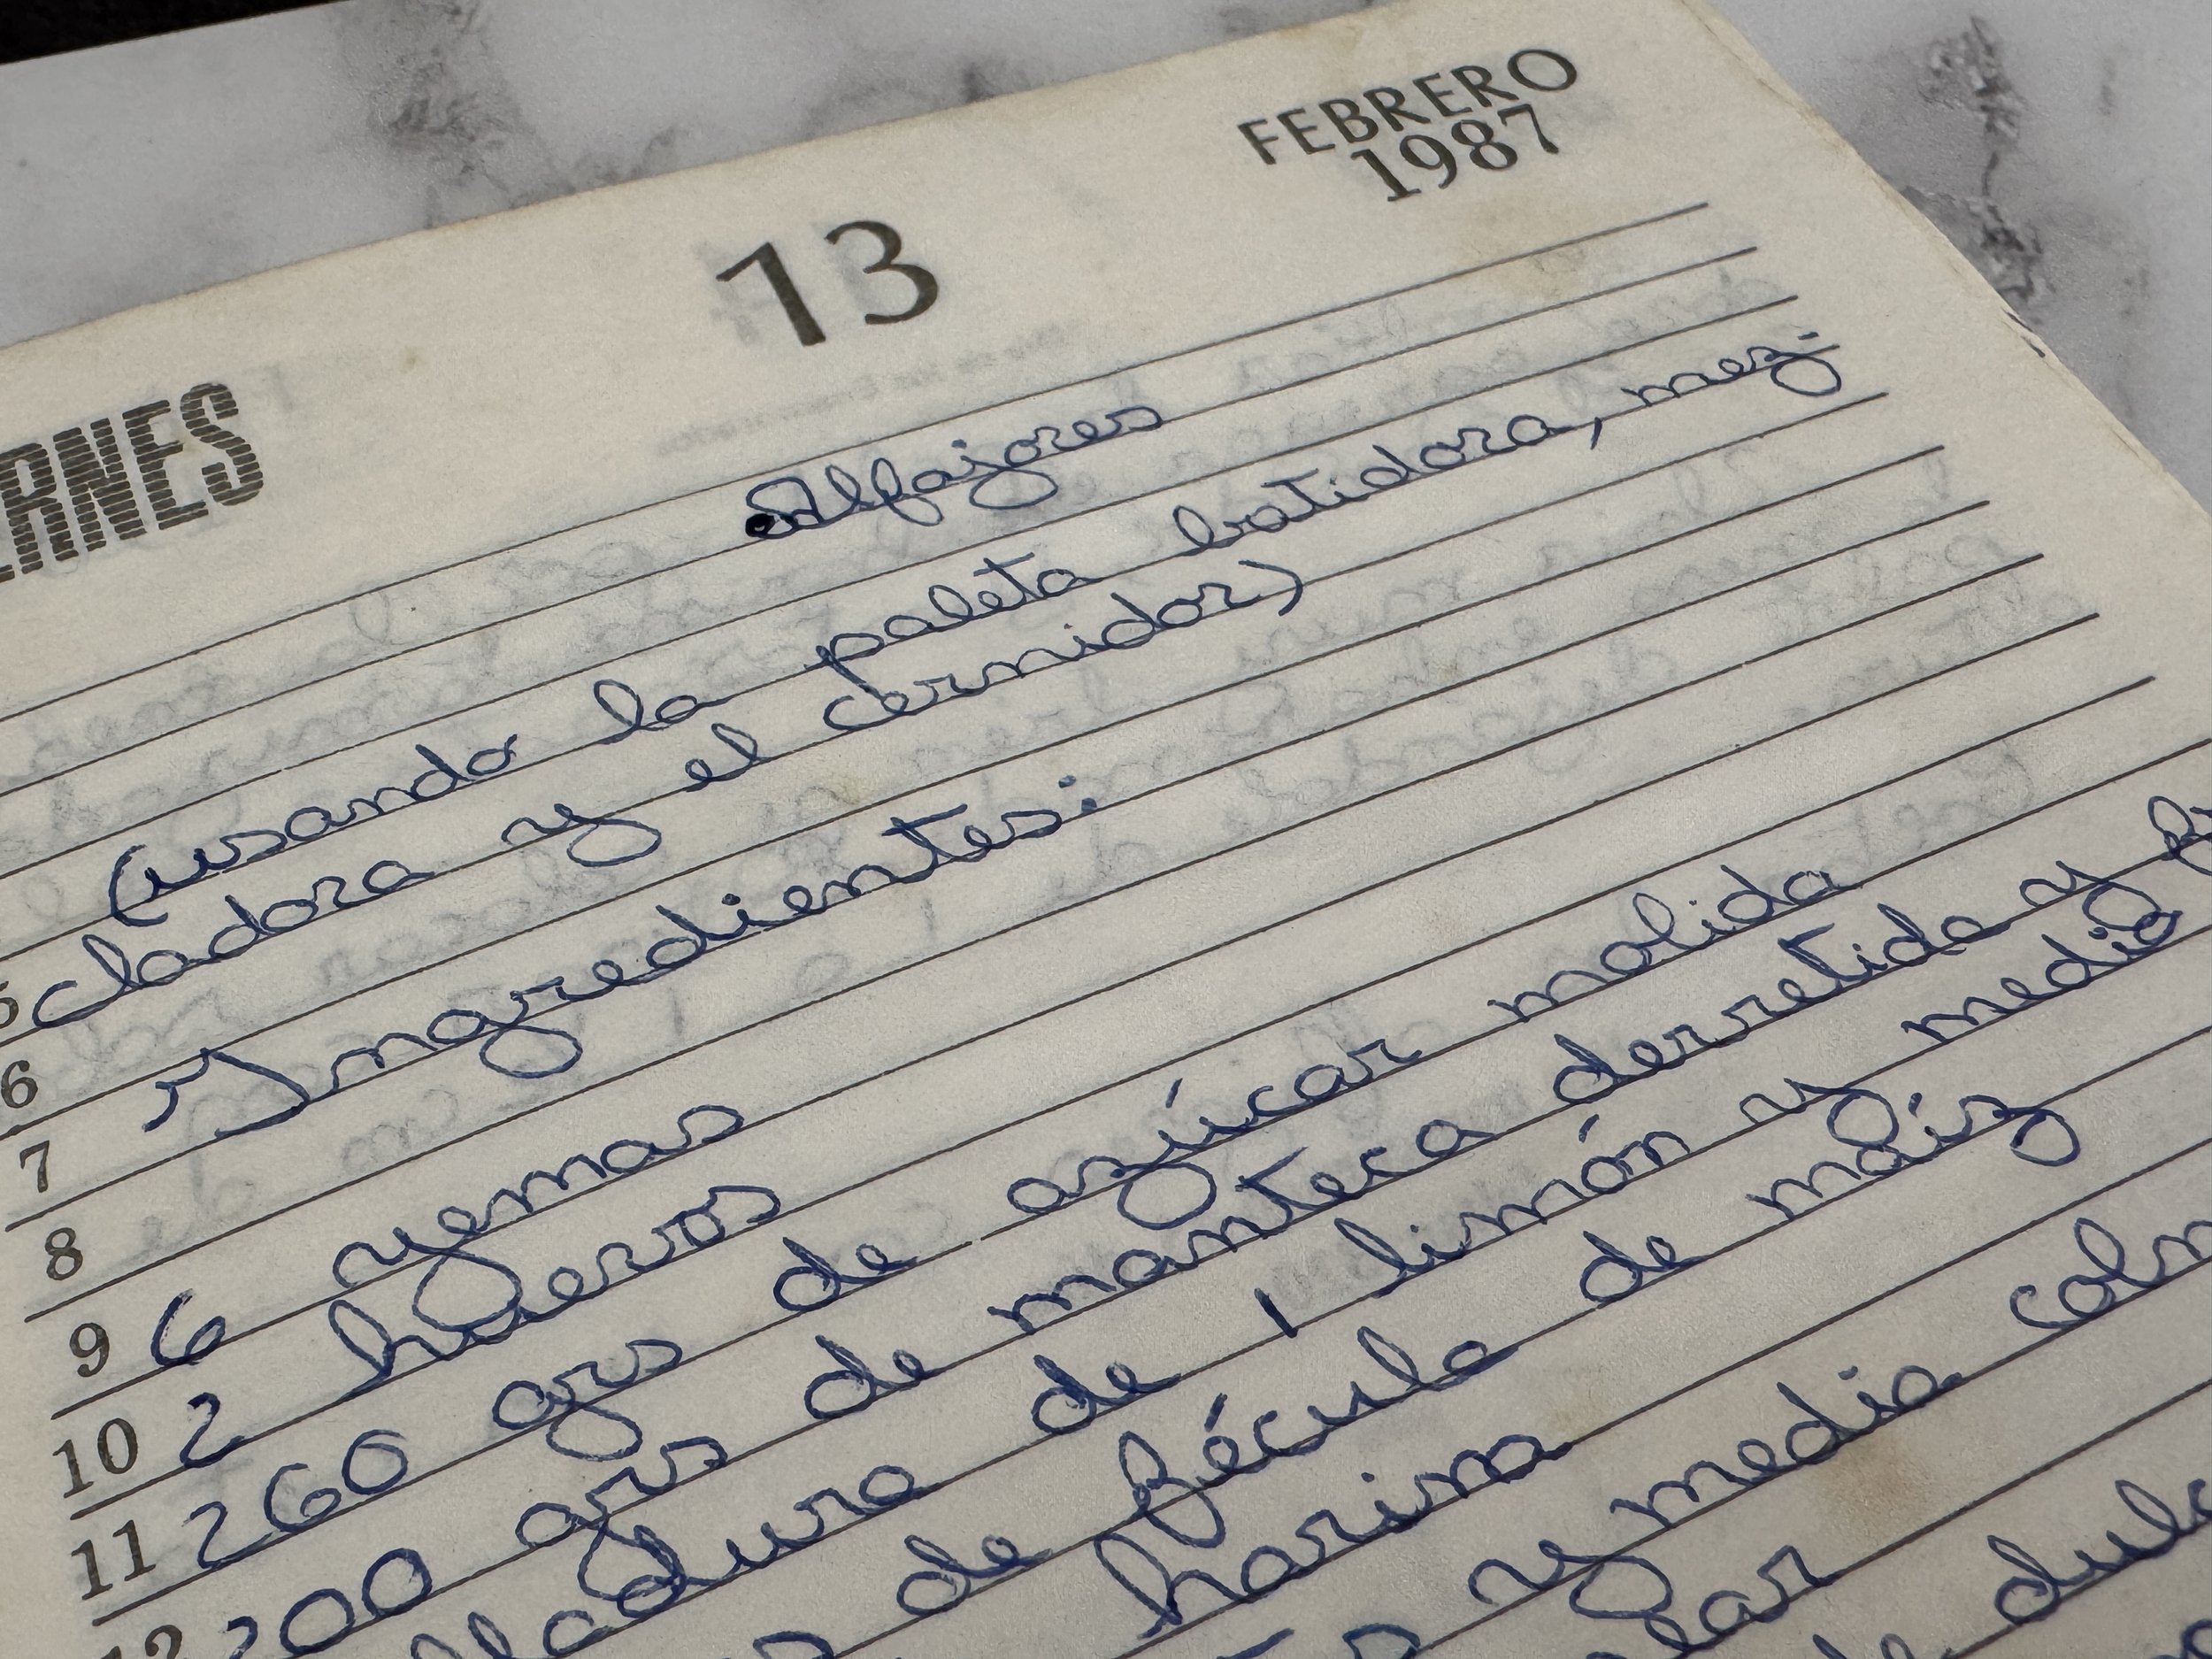 FEBRERO
1987
13
ERNES
Alfajores
(usando la paleta batidora, mez-
5 cladora y el cernidor)
6
7 Ingredientes:
8
9 6 yemas
10 2 huevos
11 260 grs de azúcar molida
12 200 grs de manteca derretida y
lladura de 1 limón y medio
de fécula de maíz
harina
y media
lar